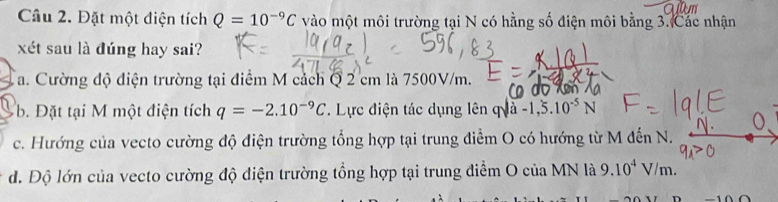 Câu 2. Đặt một điện tích Q = 10⁻⁹C vào một môi trường tại N có hằng số điện môi bằng 3. Các nhận
xét sau là đúng hay sai?
K = |q₁q₂| 596,83
a. Cường độ điện trường tại điểm M cách Q 2 cm là 7500V/m. E = K|Q|
b. Đặt tại M một điện tích q = −2.10⁻⁹C. Lực điện tác dụng lên q là -1,5.10⁻⁵ N F = |q|.E
c. Hướng của vecto cường độ điện trường tổng hợp tại trung điểm O có hướng từ M đến N.
N. O
q₁>0
d. Độ lớn của vecto cường độ điện trường tổng hợp tại trung điểm O của MN là 9.10⁴ V/m.